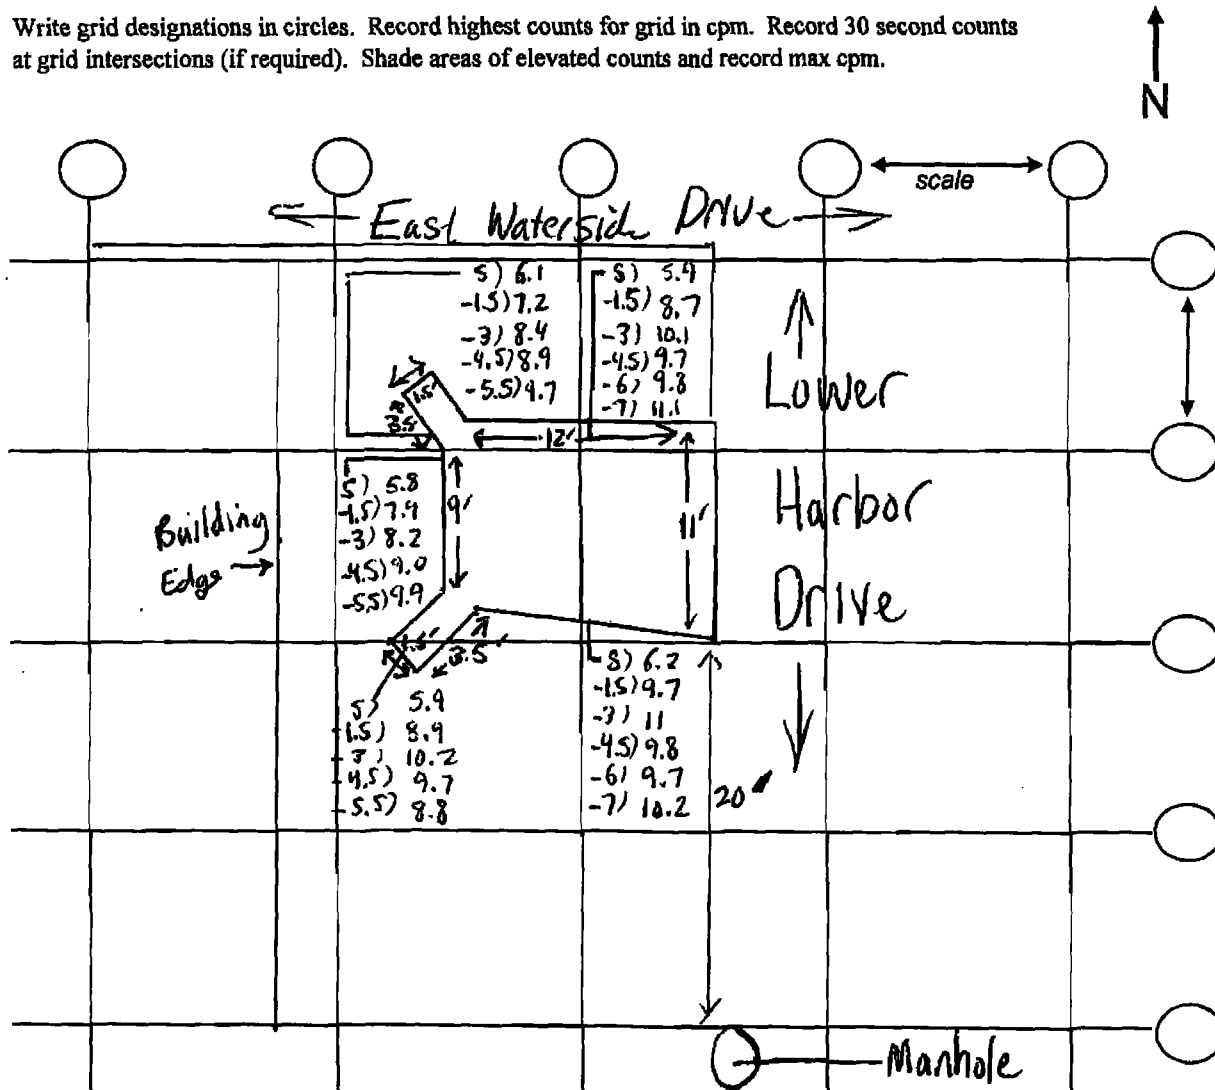 Write grid designations in circles. Record highest counts for grid in cpm. Record 30 second counts
at grid intersections (if required). Shade areas of elevated counts and record max cpm.
N
scale
East Waterside Drive
S) 6.1
-1.5) 7.2
-3) 8.4
-4.5) 8.9
-5.5) 9.7
S) 5.9
-1.5) 8.7
-3) 10.1
-4.5) 9.7
-6) 9.8
-7) 11.1
Lower
Harbor
Drive
1.5'
3.5'
12'
S) 5.8
-1.5) 7.9
-3) 8.2
-4.5) 9.0
-5.5) 9.9
9'
11'
Building
Edge
1.5'
3.5'
S) 5.9
-1.5) 8.9
-3) 10.2
-4.5) 9.7
-5.5) 8.8
S) 6.2
-1.5) 9.7
-3) 11
-4.5) 9.8
-6) 9.7
-7) 10.2
20'
Manhole